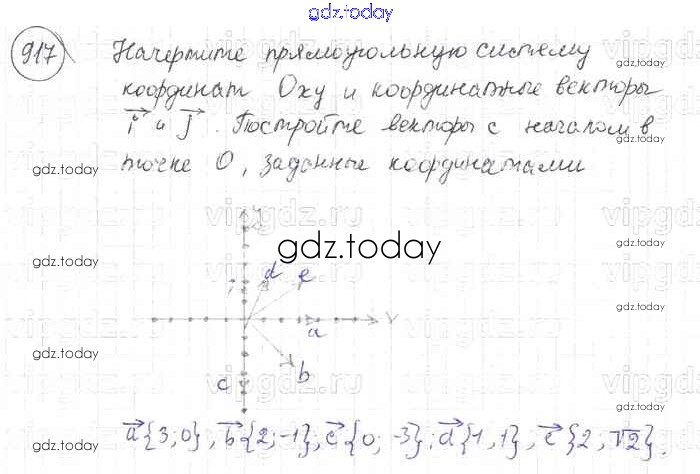 gdz.today
917 Начертите прямоугольную систему
координат Oxy и координатные векторы
i и j. Постройте векторы с началом в
gdz.today
точке O, заданные координатами
gdz.today
vipgdz.ru
vipgdz.ru
gdz.today
gdz.today
gdz.today
d e
i
a
gdz.today
gdz.today
b
c
vipgdz.ru
vipgdz.ru
a{3;0}; b{2;-1}; c{0; -3}; d{1,1}, e{2; √2}.
gdz.today
gdz.today